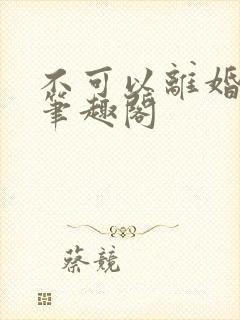 不可以離婚
筆趣閣
蔡競